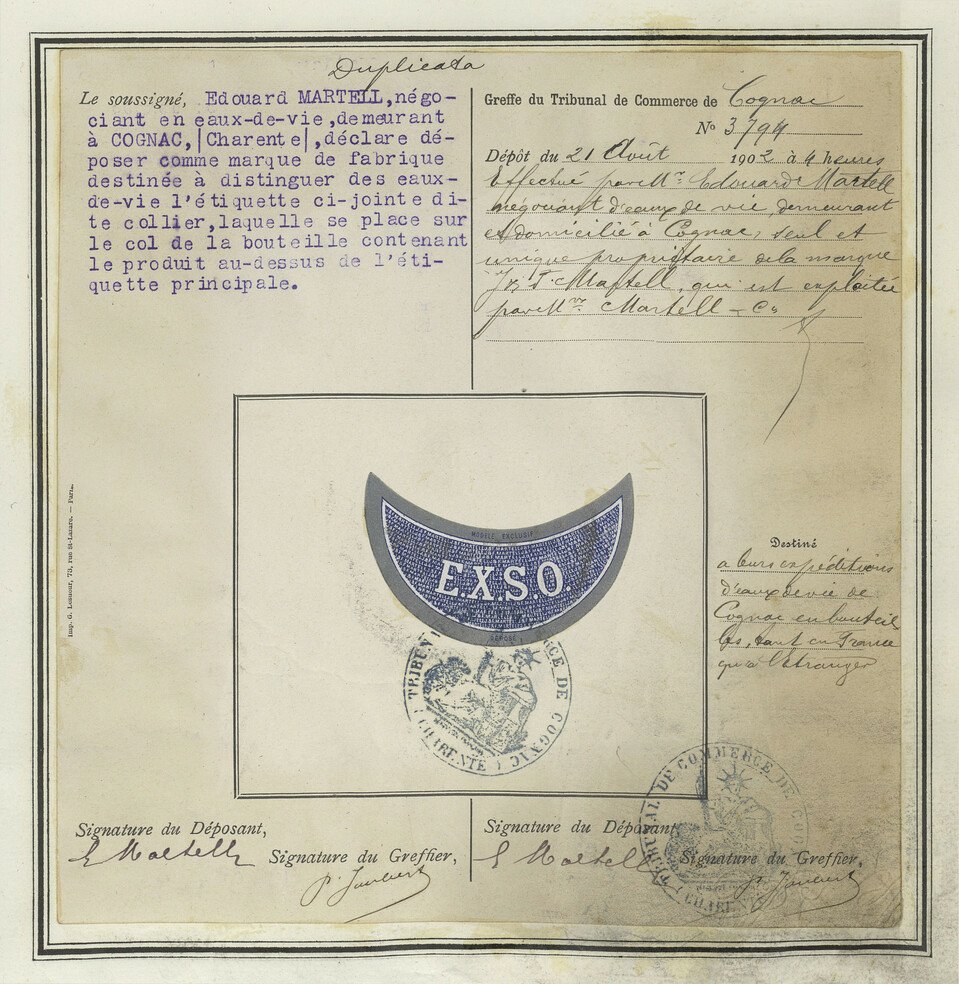 Duplicata
Le soussigné, Edouard MARTELL,négo-
ciant en eaux-de-vie,demeurant
à COGNAC,|Charente|,déclare dé-
poser comme marque de fabrique
destinée à distinguer des eaux-
de-vie l'étiquette ci-jointe di-
te collier,laquelle se place sur
le col de la bouteille contenant
le produit au-dessus de l'éti-
quette principale.
Greffe du Tribunal de Commerce de Cognac
N° 3794
Dépôt du 21 Août 1902 à 4 heures
Effectué par Mr Edouard Martell
négociant d'eaux de vie, demeurant
et domicilié à Cognac, seul et
unique propriétaire de la marque
J & F Martell, qui est exploitée
par Mrs Martell & Co
MODÈLE EXCLUSIF
E.X.S.O.
DÉPOSÉ
TRIBUNAL DE COMMERCE DE COGNAC
(CHARENTE)
Imp. G. Lesueur, 73, rue St-Lazare. — Paris.
Destiné
a leurs expéditions
d'eaux de vie de
Cognac en bouteil
les, tant en France
qu'a l'étranger
Signature du Déposant,
E Martell
Signature du Greffier,
P. Jaubert
Signature du Déposant,
E Martell
Signature du Greffier,
P. Jaubert
TRIBUNAL DE COMMERCE DE COGNAC
(CHARENTE)